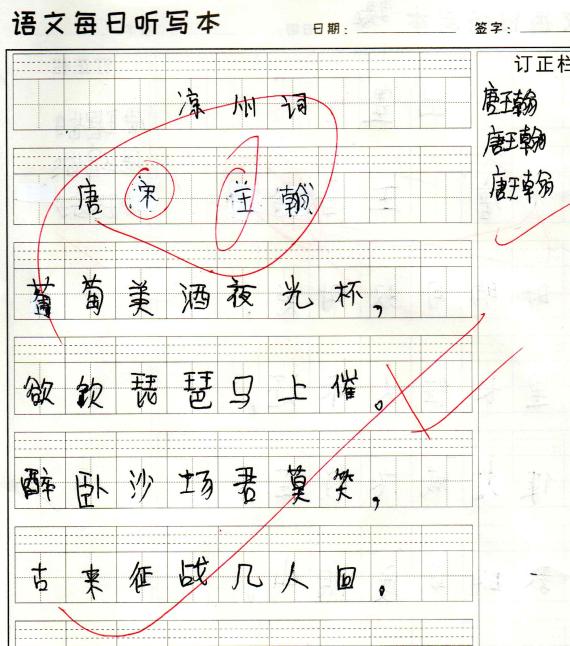 语文每日听写本 日期: 签字:
订正栏
凉州词
唐 宋 王翰
唐王翰
唐王翰
唐王翰
葡萄美酒夜光杯，
欲饮琵琶马上催。
醉卧沙场君莫笑，
古来征战几人回。